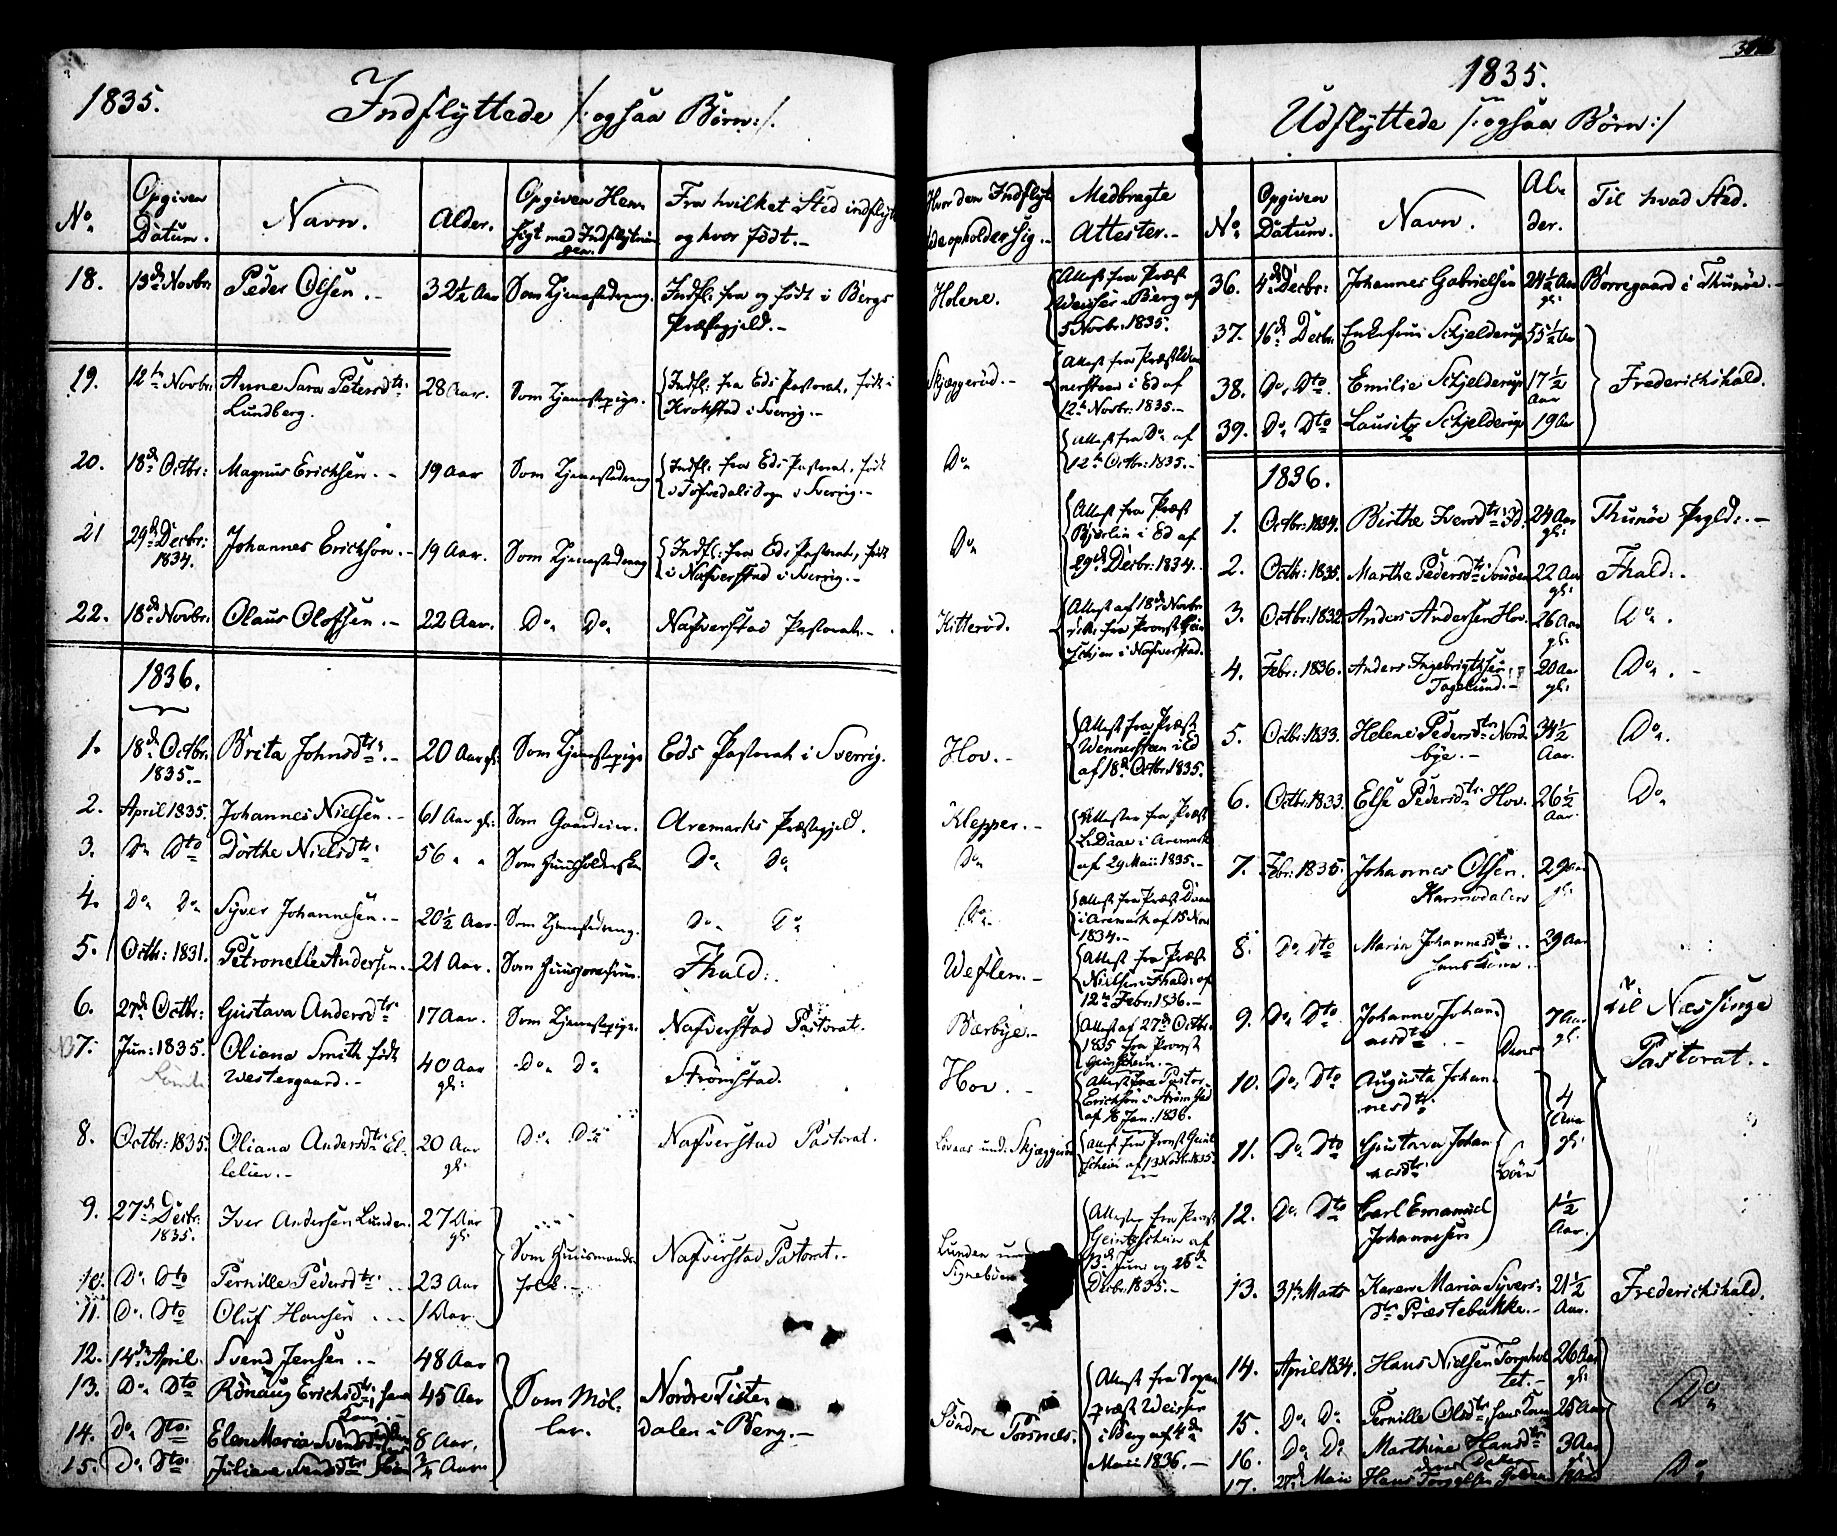 1835.
Indflyttede /: ogsaa Børn :/.
No
Opgiven Datum.
Navn.
Alder.
Opgiven Hensigt med Indflytningen.
Fra hvilket Sted indflyttet og hvor født.
Hvor den Indflyttede opholder sig.
Medbragte Attester.
18. 13de Novbr: Peder Olsen. 32½ Aar Som Tjenestedreng. Indfl: fra og født i Bergs Præstegjeld. Holene. Attest fra Præst Weisser i Berg af 5 Novbr: 1835.
19. 12te Novbr: Anne Sara Petersdtr: Lundberg. 28 Aar. Som Tjenestepige. Indfl: fra Eds Pastorat, født i Krokstad i Sverrig. Skjæggerød. Attest fra Præst Wennersteen i Ed af 12te Novbr: 1835.
20. 18de Octbr: Magnus Erichsen. 19 Aar Som Tjenestedreng Indfl: fra Eds Pastorat, født i Töfvedals Sogn i Sverrig. Do Attest fra Do af 12te Octbr: 1835.
21 29de Decbr: 1834. Johannes Erichsen. 19 Aar. Som Tjenestedreng Indfl: fra Eds Pastorat, født i Nafverstad i Sverrig. Do Attest fra Præst Bjørlin i Ed af 29de Decbr: 1834.
22. 18de Novbr: Olaus Olofsen. 22 Aar. Do Do Nafverstad Pastorat. Kitterød. Attest af 18de Novbr fra Provst i Nafverstad.
1836.
1. 18de Octbr: 1835. Brita Johnsdtr: 20 Aar gl: Som Tjenestepige Eds Pastorat i Sverrig. Hov. Attest fra Præst Wennersteen i Ed af 18de Octbr: 1835.
2. April 1835. Johannes Nielsen. 61 Aar gl: Som Gaardeier. Aremarks Præstegjeld. Klepper. Attester fra Præst L: Daae i Aremark af 29 Maii 1835.
3. Do Dto Dorthe Nielsdtr: 56 " " Som Huusholderske Do Do Do
4. Do Do Syver Johannesen. 20½ Aar. Som Tjenestedreng. Do Do Do Attest fra Præst Daae i Aremark af 15 Nov 1834.
5. Octbr: 1831. Petronelle Andersen. 21 Aar. Som Huusjomfrue. Fhald: Weflen. Attest fra Præst Nielsen i Fhald: af 12te Febr: 1836.
6. 27de Octbr: Gustava Andersdtr 17 Aar. Som Tjenestepige. Nafverstad Pastorat. Bærbye. Attest af 27de Octbr: 1835 fra Provst
7. Jun: 1835. Oliana Smith født Westergaard. 40 Aar gl: Do Do Strømstad. Hov. Attest fra Pastor Erichson i Strømstad af 18 Jan: 1836.
8. Octbr: 1835. Oliana Andersdtr: 20 Aar gl: Do Do Nafverstad Pastorat. und: Skjæggerød Attest fra Provst af 13 Novbr: 1835.
9. 27de Decbr: 1835. Iver Andersen Lunden. 27 Aar gl: Som Huusmandsfolk. Nafverstad Pastorat. Lunden under Signebøen Attester fra Provst af 13de Juni og 26de Decbr: 1835.
10. Do Dto Pernille Pedersdtr: 23 Aar
11. Do Dto Oluf Hansen 1 Aar.
12. 14de April. Svend Jensen. 48 Aar Som Møller. Nordre Tistedalen i Berg. Søndre Torsnes. Attest fra Sognepræst Weisser i Berg af 4de Maii 1836.
13. Do Dto Rønaug Erichsdtr: hans Kone. 45 Aar
14. Do Dto Elen Maria Svendsdtr 8 Aar.
15. Do Dto Juliane Svendsdtr ¾ Aar
1835.
Udflyttede /: ogsaa Børn :/
No
Opgiven Datum.
Navn.
Alder.
Til hvad Sted.
36. 4de Decbr: Johannes Gabrielsen 24½ Aar gl: Borregaard i Thunøe.
37. 16de Decbr: Enkefrue Schjelderup 55½ Aar Frederichshald.
38. Do Dto Emilie Schjelderup 17½ Aar
39. Do Dto Lauritz Schjelderup 19 Aar
1836.
1. Octbr: 1834. Birthe Iversdtr: 24 Aar gl: Thunøe Prgld:
2. Octbr: 1835. Marthe Pedersdtr 22 Aar gl: Fhald:
3. Octbr: 1832 Anders Andersen Hov. 26 Aar gl: Do
4. Febr: 1836. Anders Ingebrigtsen Tagelund. 20 Aar gl: Do
5. Octbr: 1833. Helene Pedersdtr Nordbye. 34½ Aar. Do
6. Octbr: 1833. Else Pedersdtr Hov. 26½ Aar. Do
7. Febr: 1835. Johannes Olsen Karmodalen 29 Aar gl: Til Næssinge Pastorat.
8. Do Dto Maria Johannesdtr: hans Kone. 29 Aar
9. Do Dto Johanne Johannesdtr 7 Aar gl: Deres Børn
10. Do Dto Augusta Johannesdtr: 4 Aar gl:
11. Do Dto Gustava Johannesdtr:
12. Do Dto Carl Emanuel Johannesen 1½ Aar.
13. 31te Marts Karen Maria Syversdtr Præstebakke. 21½ Aar. Frederichshald.
14. April 1834. Hans Nielsen Torpholtet. 26 Aar gl: Do
15. Do Do Pernille Olsdtr hans Kone 25 Aar
16. Do Do Marthine Hansdtr 3 Aar
17. 27de Maii Hans Do